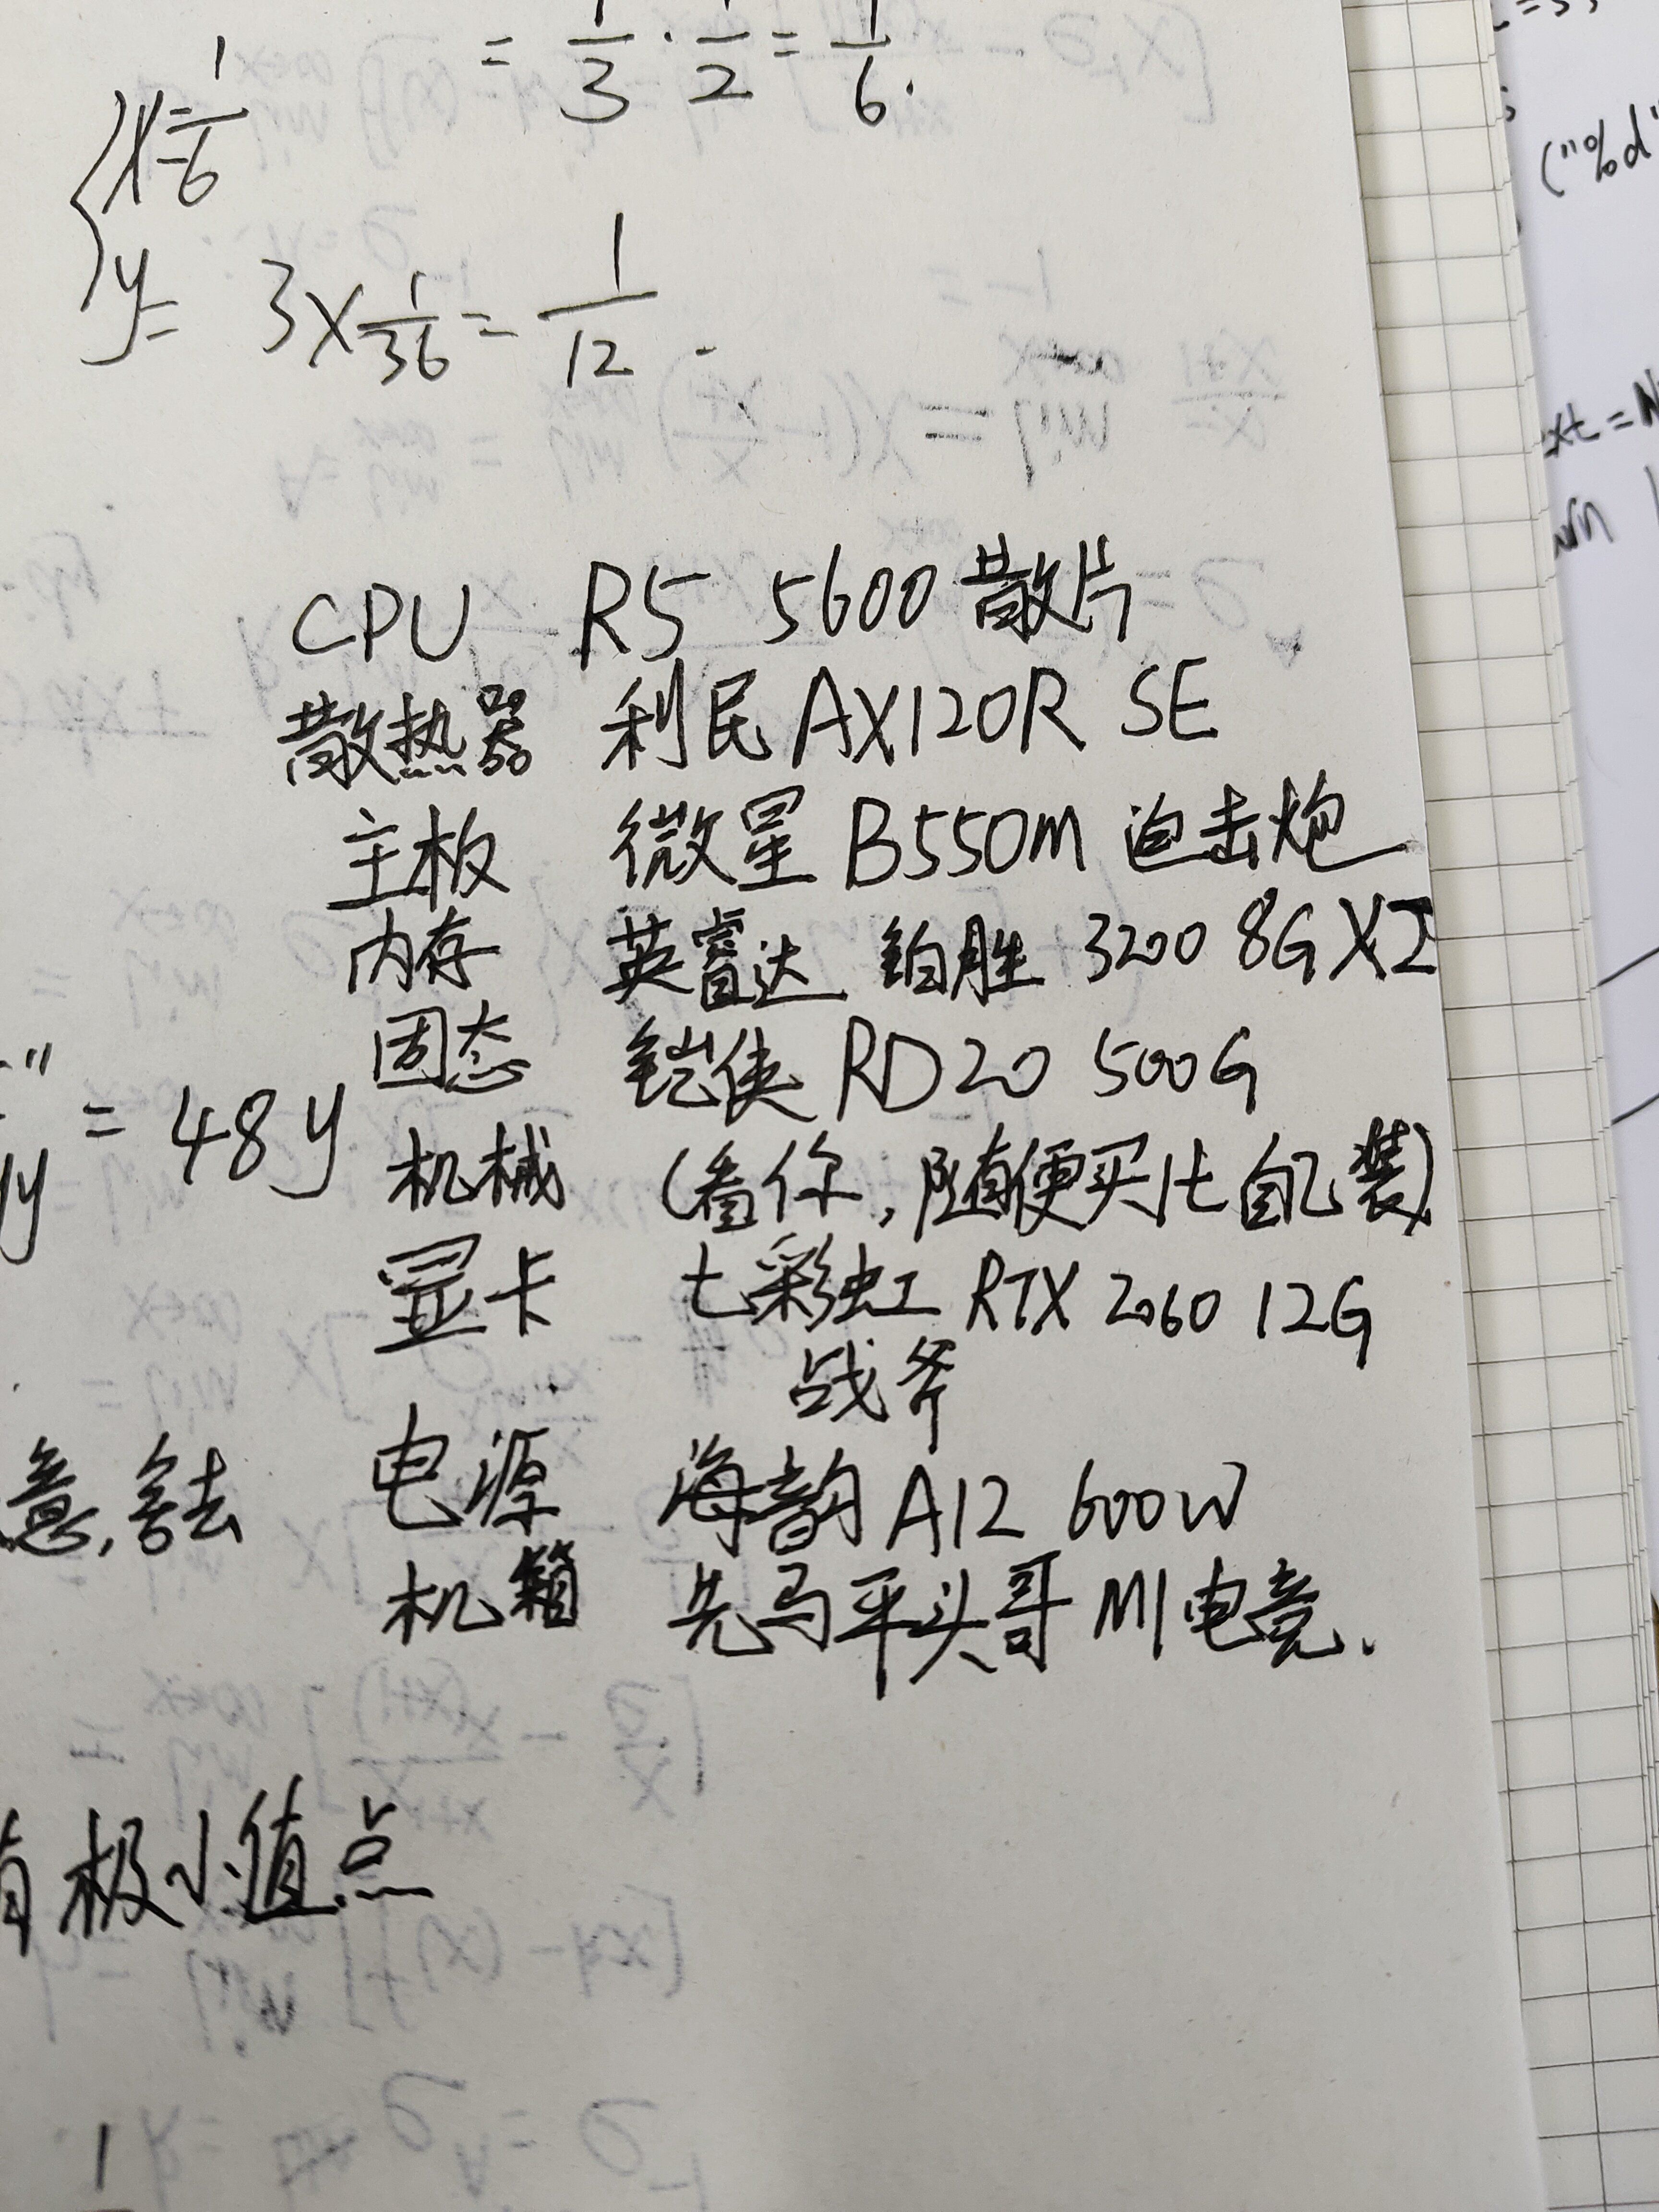 = 1/3 · 1/2 = 1/6.
x = 1/6
y = 3 × 1/36 = 1/12.
CPU R5 5600 散片
散热器 利民 AX120R SE
主板 微星 B550M 迫击炮
内存 英睿达 铂胜 3200 8G X2
固态 铠侠 RD20 500G
= 48y
机械 (看你,随便买比自己装)
显卡 七彩虹 RTX 2060 12G
战斧
意,舍去
电源 海韵 A12 600W
机箱 先马平头哥 M1 电竞.
极小值点
("%d"